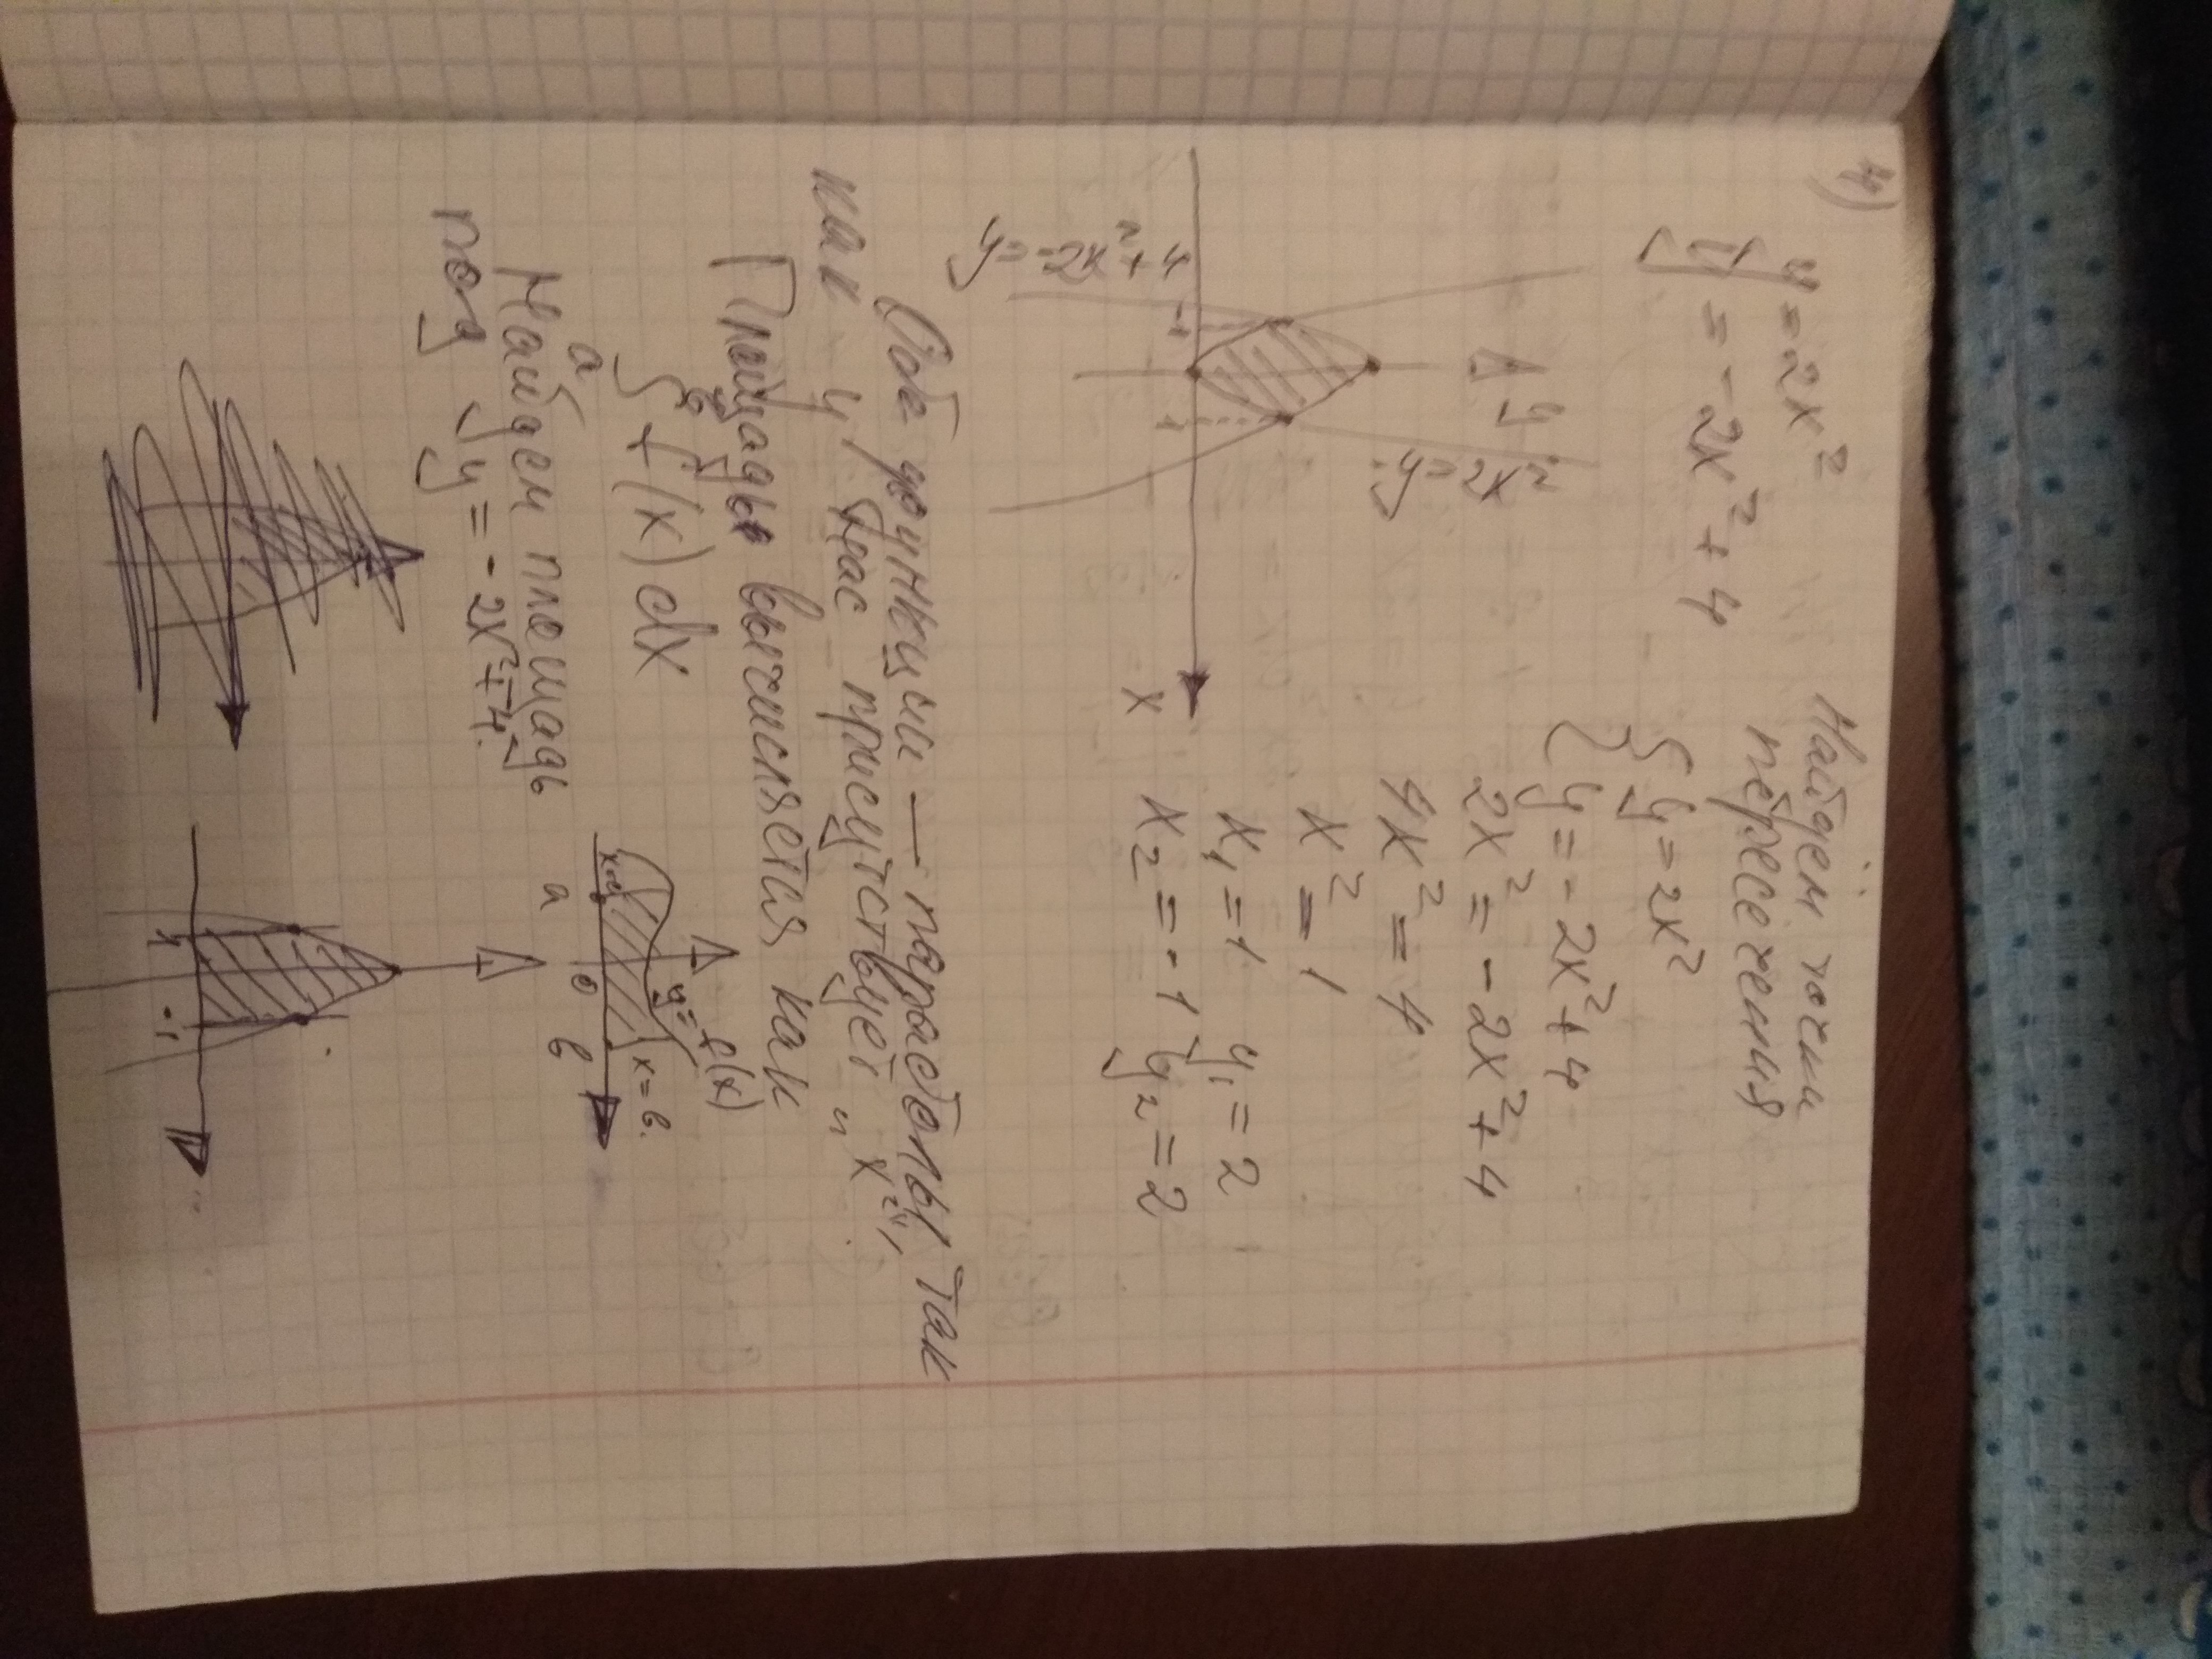 4)
y = 2x²
y = -2x² + 4
Найдем точки
пересечения
{ y = 2x²
y = -2x² + 4
2x² = -2x² + 4
4x² = 4
x² = 1
x₁ = 1 y₁ = 2
x₂ = -1 y₂ = 2
y
y = 2x²
-1
1
x
y = -2x² + 4
Обе функции — параболы, так
как у нас присутствует "x²",
Площадь вычисляется как
∫ f(x) dx
a
y = f(x)
x = b.
x=a
0
a
b
Найдем площадь
под y = -2x² + 4.
-1